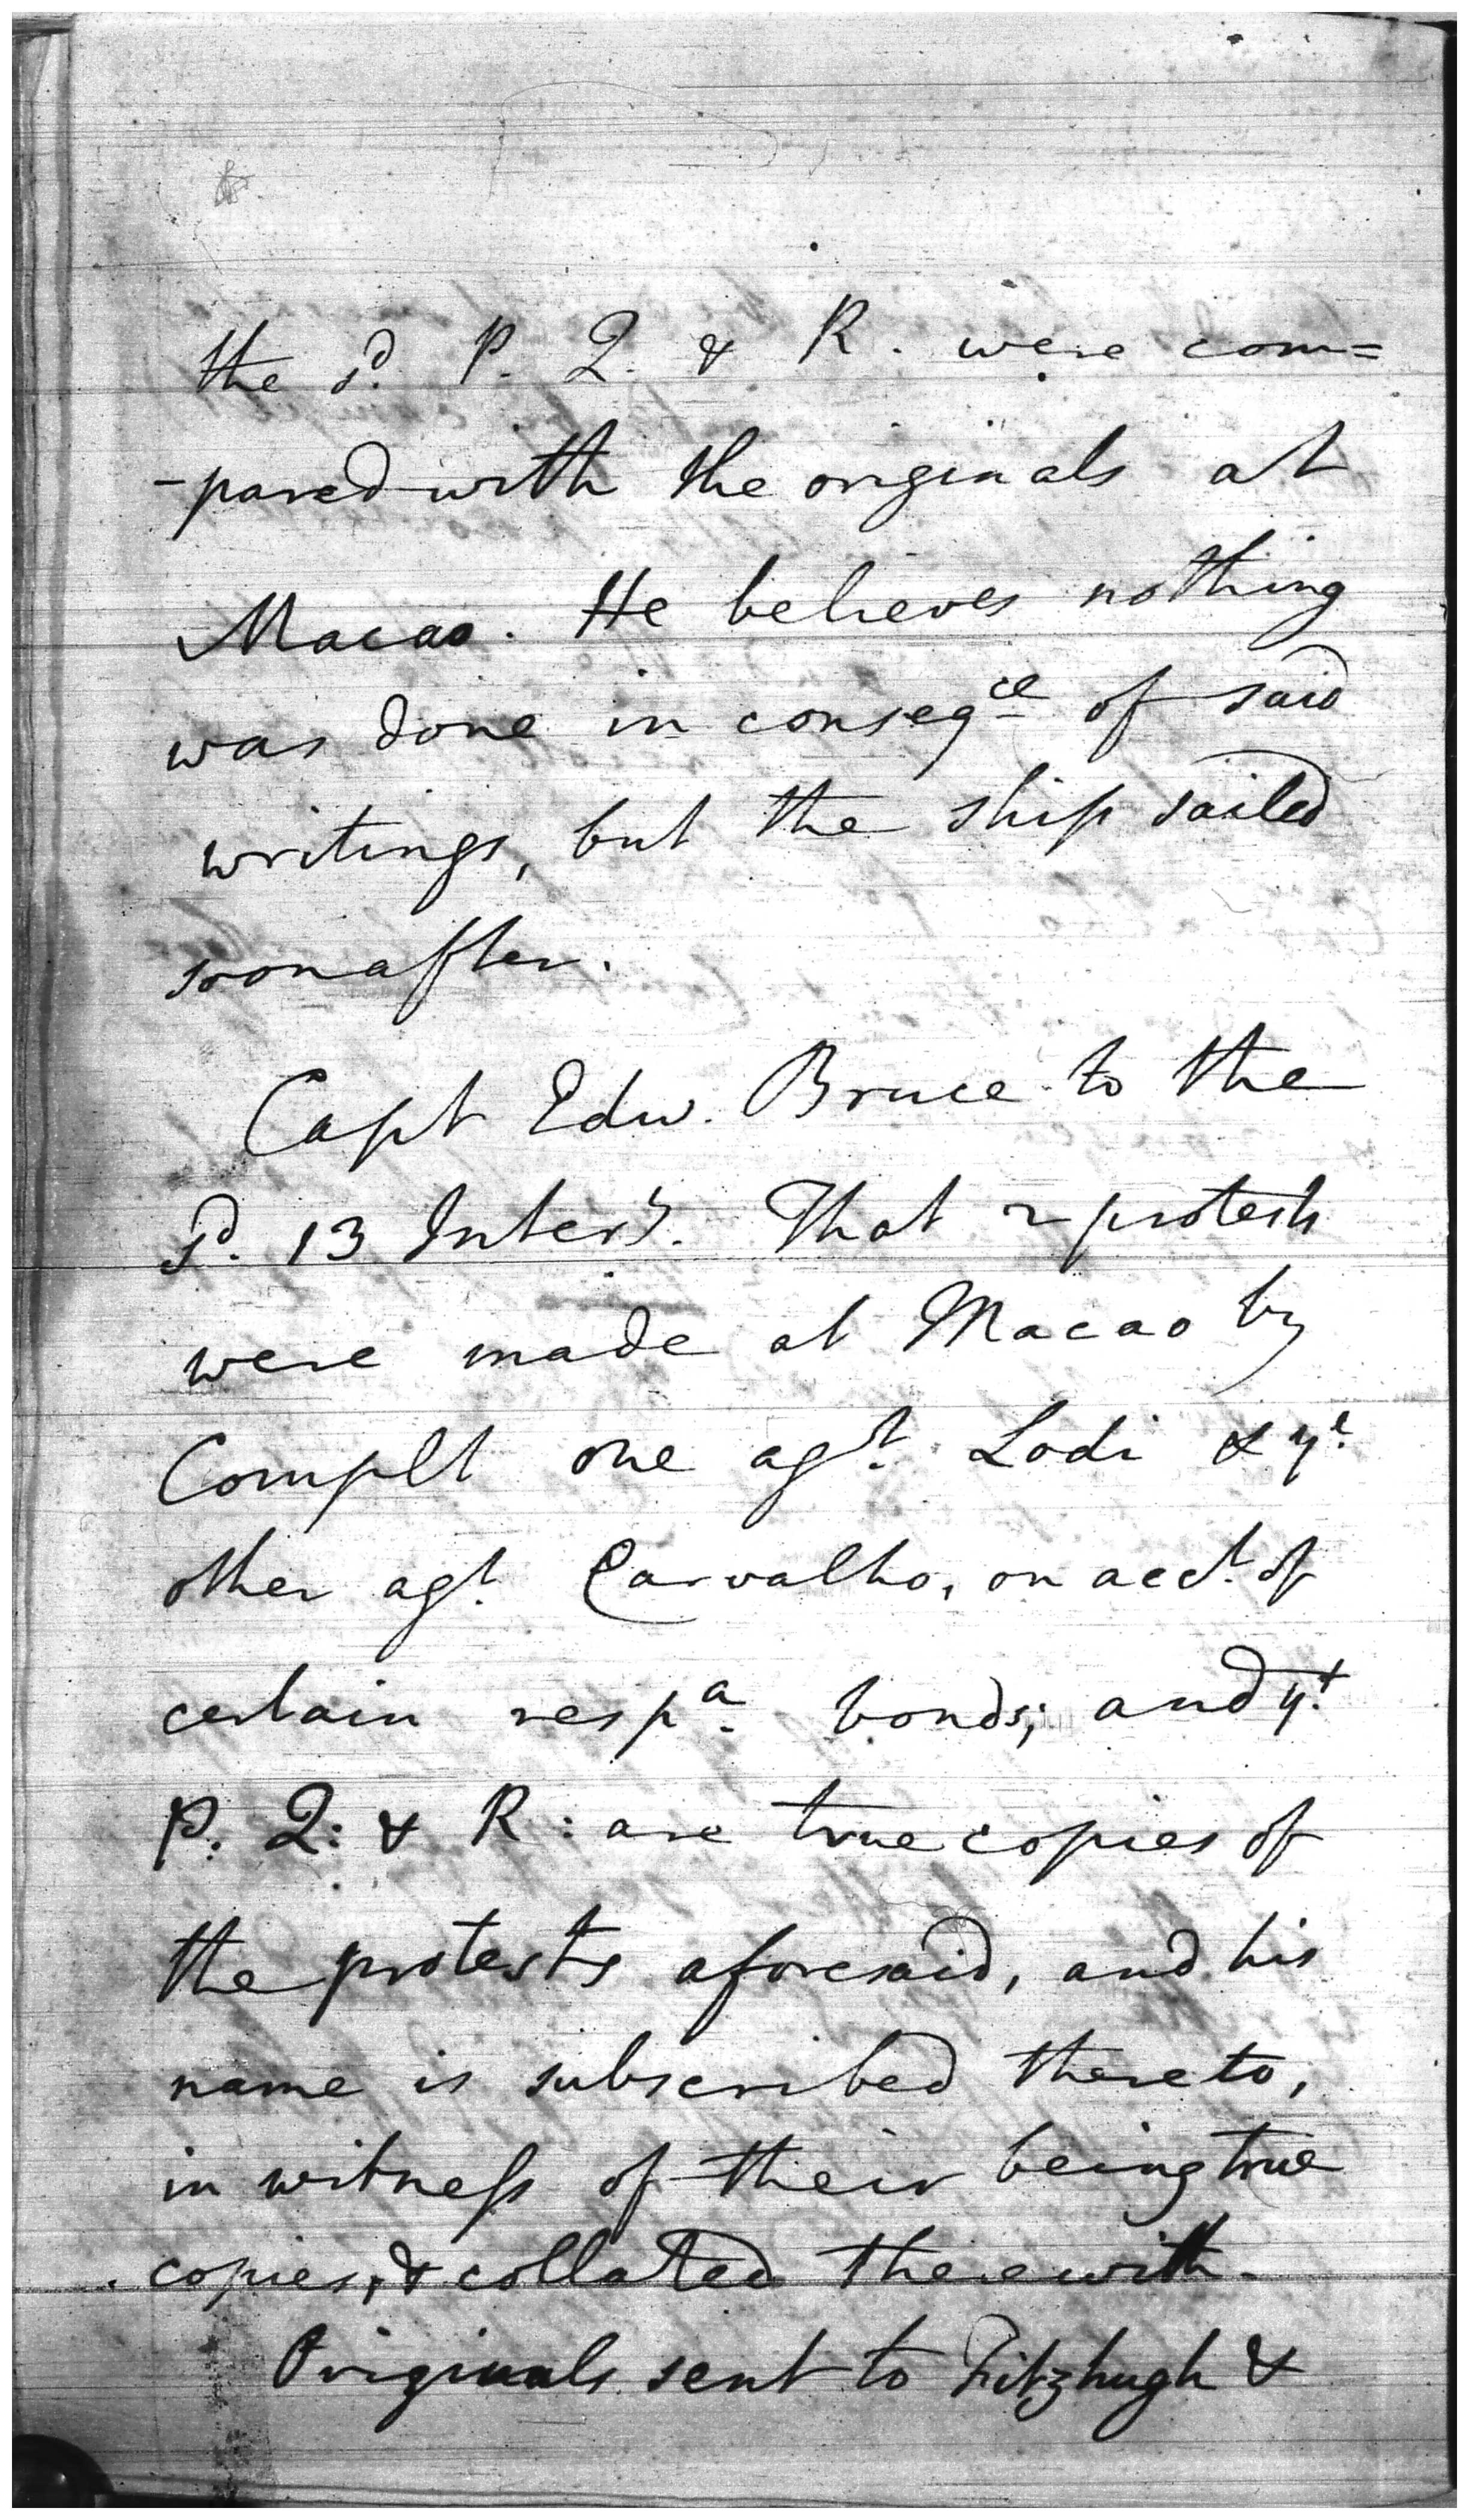 the sd. P. Q. & R. were com=
-pared with the originals at
Macao. He believes nothing
was done in conseqce of said
writings, but the ship sailed
soon after.
Capt Edw. Bruce to the
sd. 13 Intery. That 2 protests
were made at Macao by
Complt one agt. Lodi & ye.
other agt. Carvalho, on acct. of
certain respa. bonds; and yt.
P. Q: & R: are true copies of
the protests aforesaid, and his
name is subscribed thereto,
in witness of their being true
copies, & collated therewith.
Originals sent to Fitzhugh &